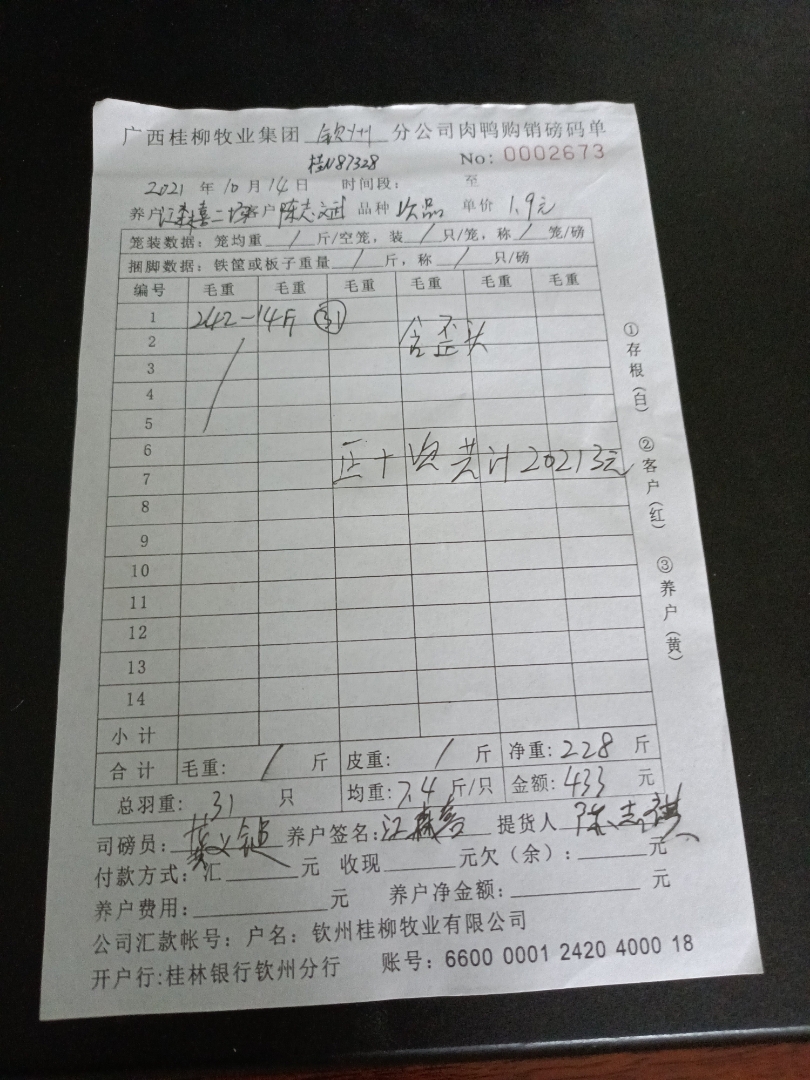 广西桂柳牧业集团 钦州 分公司肉鸭购销磅码单
桂N87328 No: 0002673
2021 年 10 月 14 日 时间段: 至
养户 二场 客户 陈志斌 品种 次品 单价 1.9元
笼装数据: 笼均重 / 斤/空笼, 装 / 只/笼, 称 / 笼/磅
捆脚数据: 铁筐或板子重量 / 斤, 称 / 只/磅
编号 毛重 毛重 毛重 毛重 毛重 毛重
1 242-14斤 31
2 含歪头
3
4
5
6
7 正+次共计20213元
8
9
10
11
12
13
14
小计
合计 毛重: / 斤 皮重: / 斤 净重: 228 斤
总羽重: 31 只 均重: 7.4 斤/只 金额: 433 元
司磅员: 养户签名: 江森 提货人 陈志
付款方式: 汇 元 收现 元欠(余): 元
养户费用: 元 养户净金额: 元
公司汇款帐号: 户名: 钦州桂柳牧业有限公司
开户行:桂林银行钦州分行 账号: 6600 0001 2420 4000 18
①存根(白) ②客户(红) ③养户(黄)